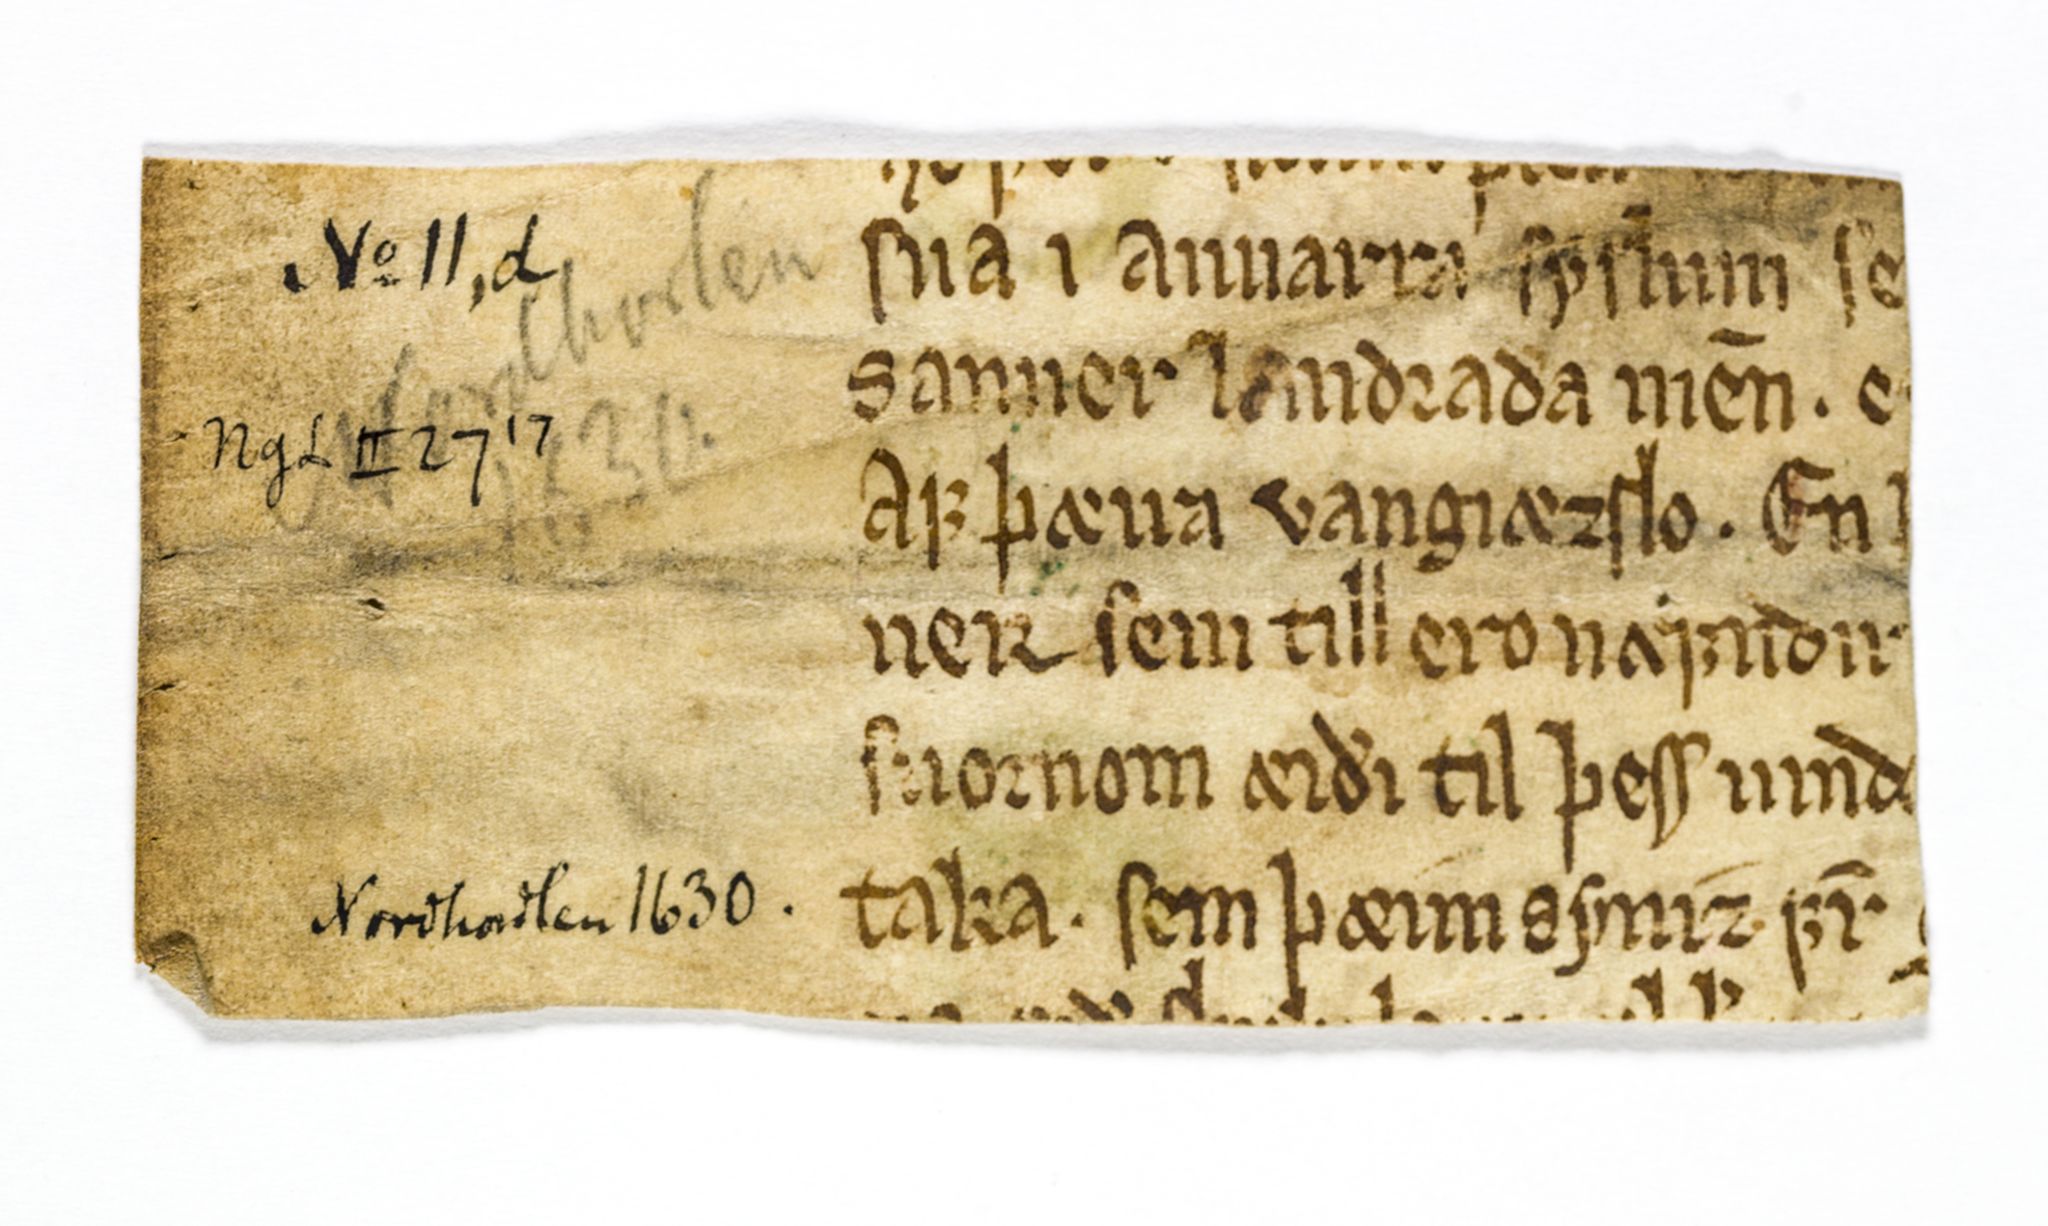 No 11, d
Nordhorlen
1630.
NgL II 27¹⁷
Nordhordlen 1630.
sua i annarri syslum se
sanner landraða men̄. e
Af þæira vangiæzslo. En
ner sem till ero næfndir
suornom æiði til þess uinda
taka. sem þæim syniz fir̄